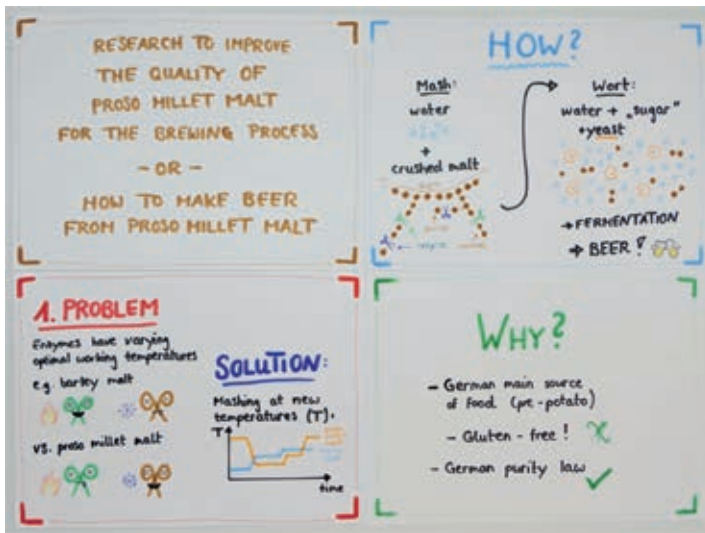 RESEARCH TO IMPROVE
THE QUALITY OF
PROSO MILLET MALT
FOR THE BREWING PROCESS
- OR -
HOW TO MAKE BEER
FROM PROSO MILLET MALT
HOW?
Mash:
water
+
crushed malt
Wort:
water + „sugar"
+yeast
→ FERMENTATION
→ BEER!
1. PROBLEM
Enzymes have varying
optimal working temperatures
e.g. barley malt
vs. proso millet malt
SOLUTION:
Mashing at new
temperatures (T).
T
time
WHY?
- German main source
of food (pre-potato)
- Gluten-free!
- German purity law